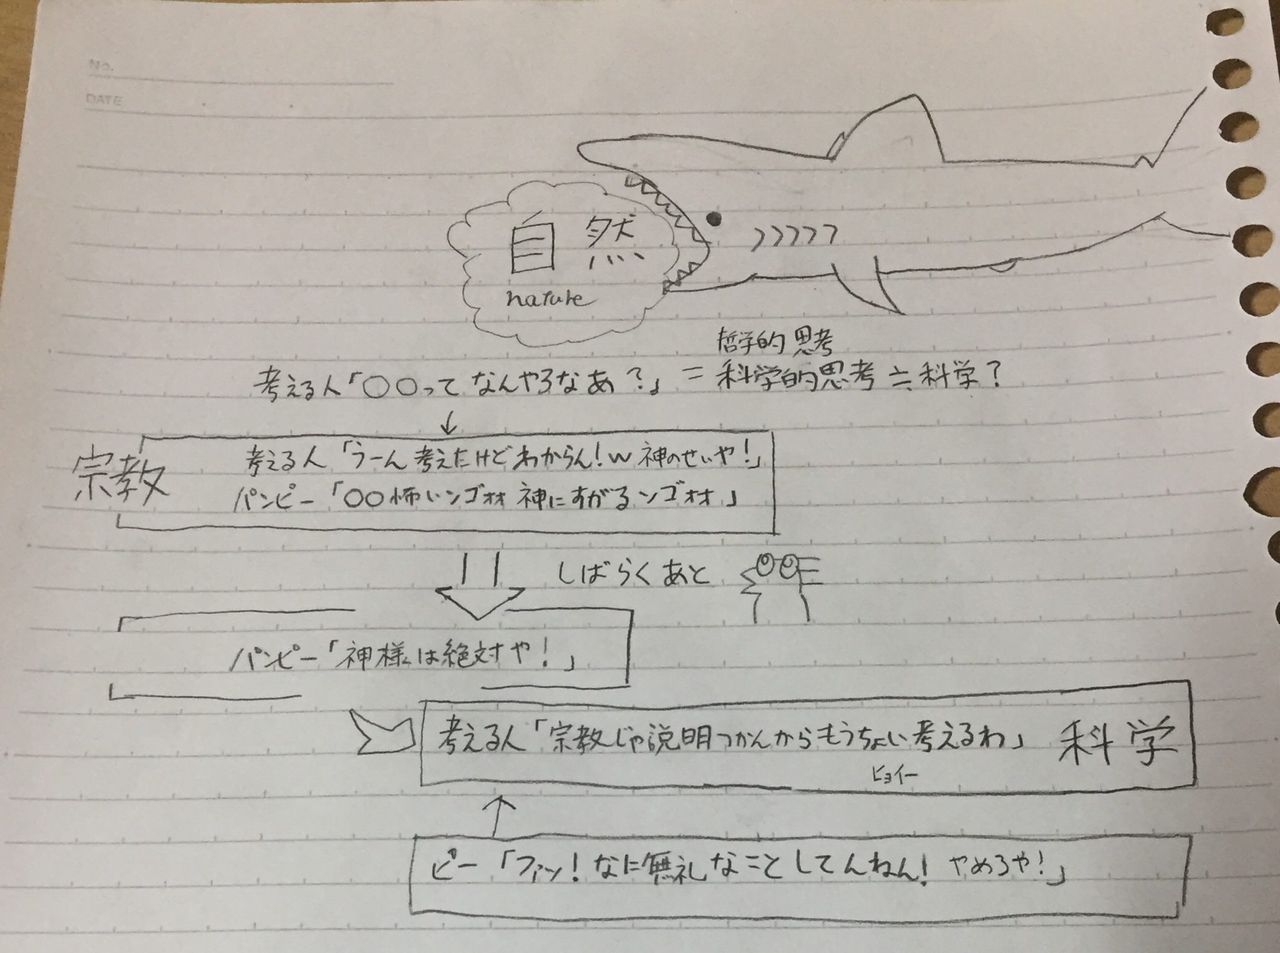 No.
DATE
自然
nature
哲学的思考
考える人「〇〇ってなんやろなあ？」＝科学的思考≒科学？
↓
宗教
考える人「うーん考えたけどわからん！w 神のせいや！」
パンピー「〇〇怖いンゴォォ 神にすがるンゴォォ」
しばらくあと
パンピー「神様は絶対や！」
考える人「宗教じゃ説明つかんからもうちょい考えるわ」 科学
ヒョイー
ピー「ファッ！なに無礼なことしてんねん！やめろや！」